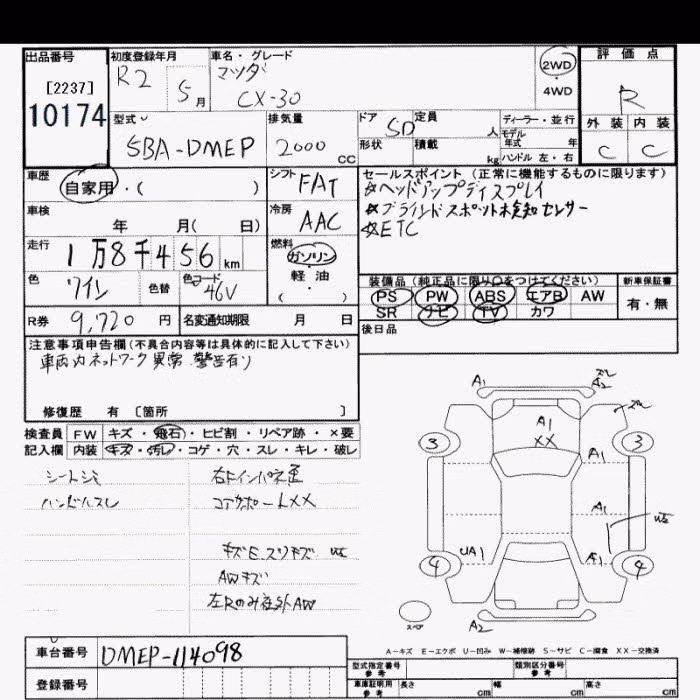 出品番号
[2237]
10174
初度登録年月
R2 5月
車名・グレード
マツダ
CX-30
2WD
・
4WD
評価点
R
外装 内装
C C
型式
5BA-DMEP
排気量
2000 CC
ドア 5D
形状
定員 人
積載 kg
ディーラー・並行
モデル年式 年
ハンドル 左・右
車歴
自家用・( )
シフト FAT
車検
年 月( 日)
冷房 AAC
走行
1万8千456 km
燃料
ガソリン
・
軽・油
( )
色 ワイン 色替 色コード 46V
R券 9,720 円 名変通知期限 月 日
セールスポイント (正常に機能するものに限ります)
☆ヘッドアップディスプレイ
☆ブラインドスポット検知センサー
☆ETC
装備品 (純正品に限り○をつけてください)
PS PW ABS エアB AW
SR ナビ TV カワ
新車保証書
有・無
後日品
注意事項申告欄 (不具合内容等は具体的に記入して下さい)
車両内ネットワーク異常 警告有り
修復歴 有 〔箇所 〕
検査員 FW キズ・飛石・ヒビ割・リペア跡・×要
記入欄 内装 キズ・汚レ・コゲ・穴・スレ・キレ・破レ
シートシミ
ハンドルスレ
右Fインパネ歪
コアサポートXX
キズE.スリキズ
AWキズ
左Rのみ社外AW
A1 A2
A1
XX
3 3
A1
A1
UA1 A1
4 4
スペア
A2
A−キズ E−エクボ U−凹み W−補修跡 S−サビ C−腐食 XX−交換済
車台番号 DMEP-114098
登録番号
型式指定番号 参考
類別区分番号 参考
車庫証明用 参考 長さ cm 幅 cm 高さ cm